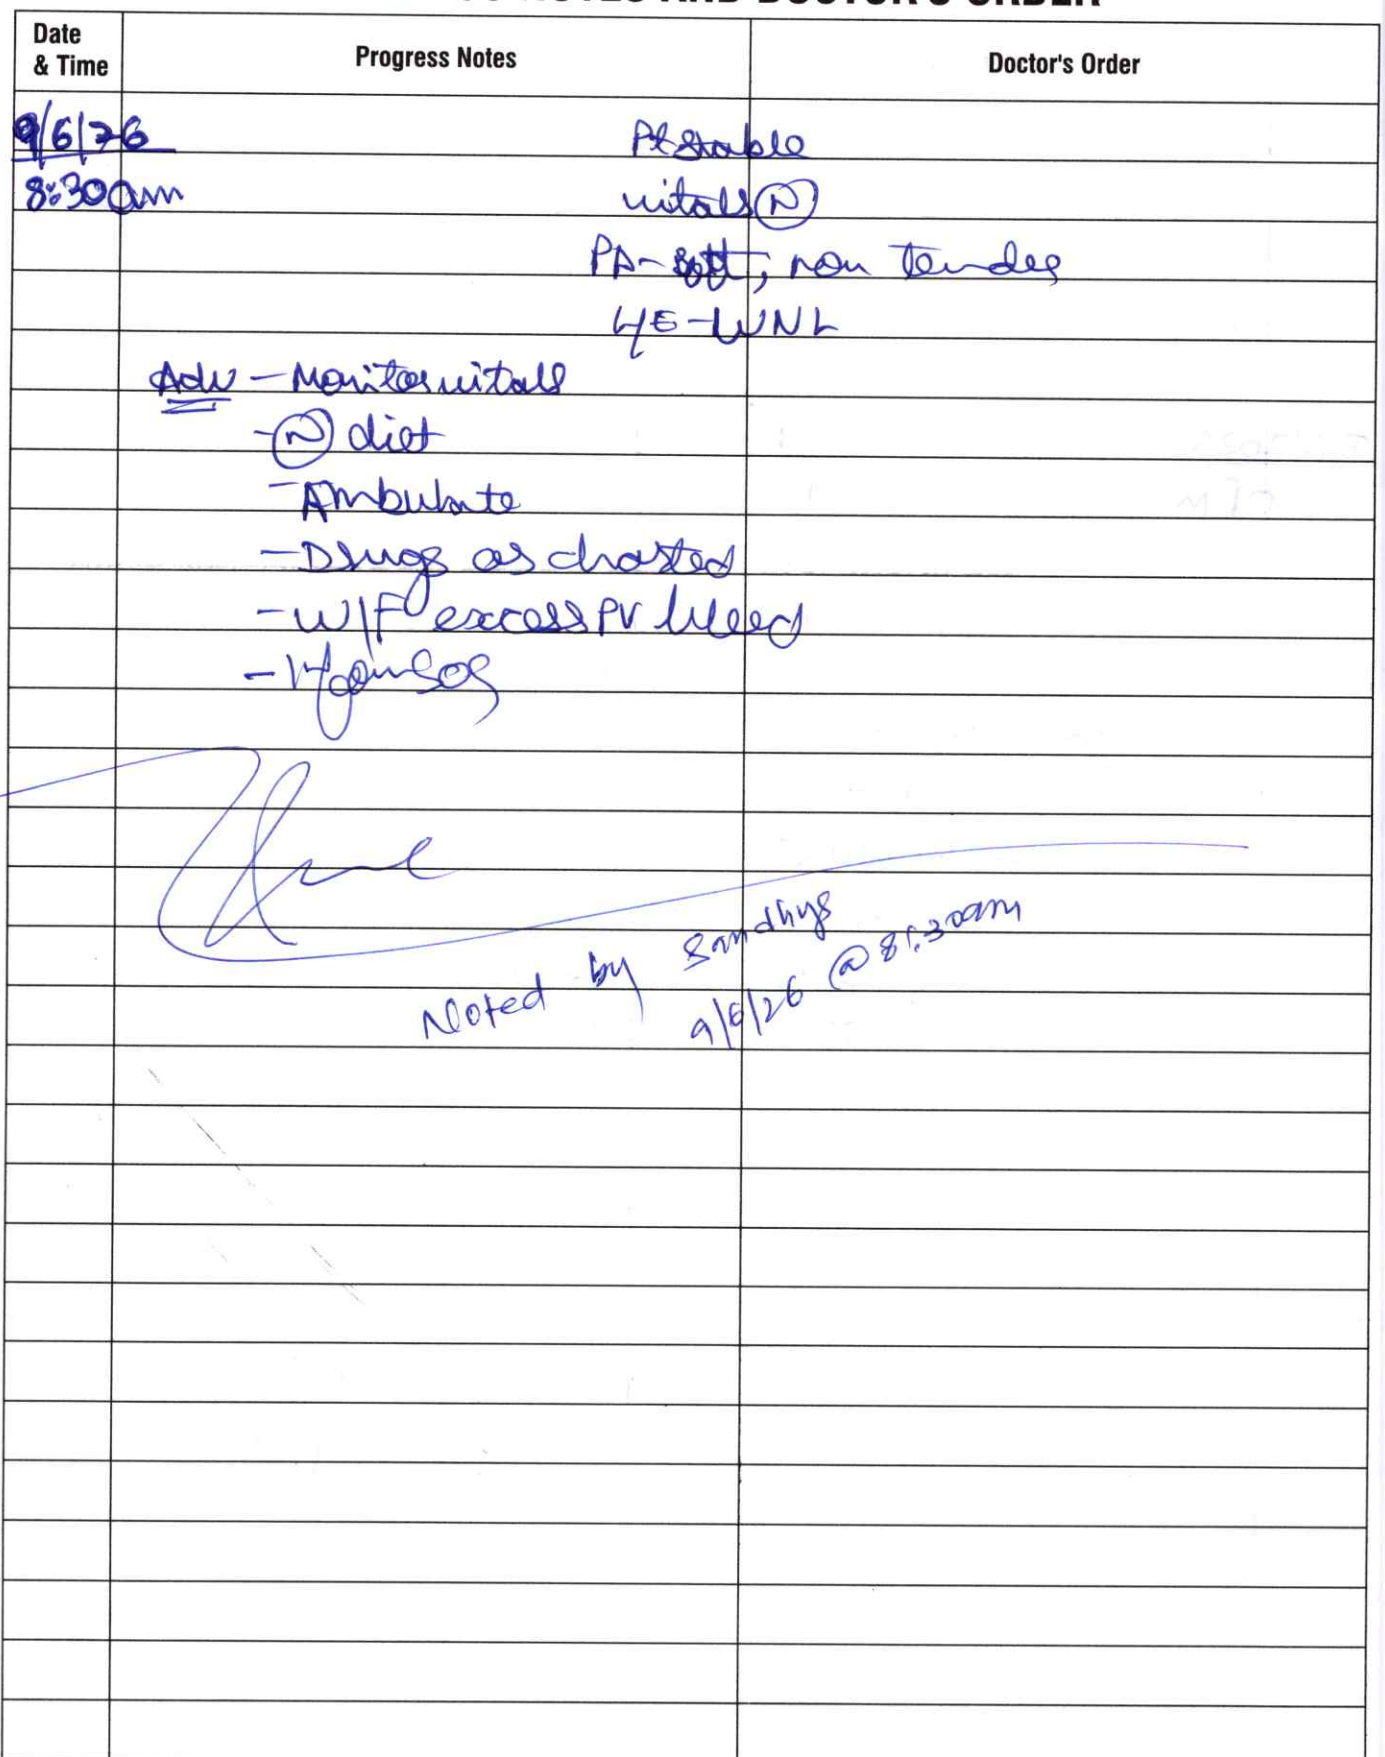 NOTES AND DOCTOR'S ORDER
Date & Time
Progress Notes
Doctor's Order
9/6/26
8:30am
Pt stable
vitals (N)
PA- soft, non tender
L/E-WNL
Adv - Monitor vitals
- (N) diet
- Ambulate
- Drugs as charted
- W/F excess PV bleed
- SOS
Noted by Sandhya
9/6/26 @ 8:30am